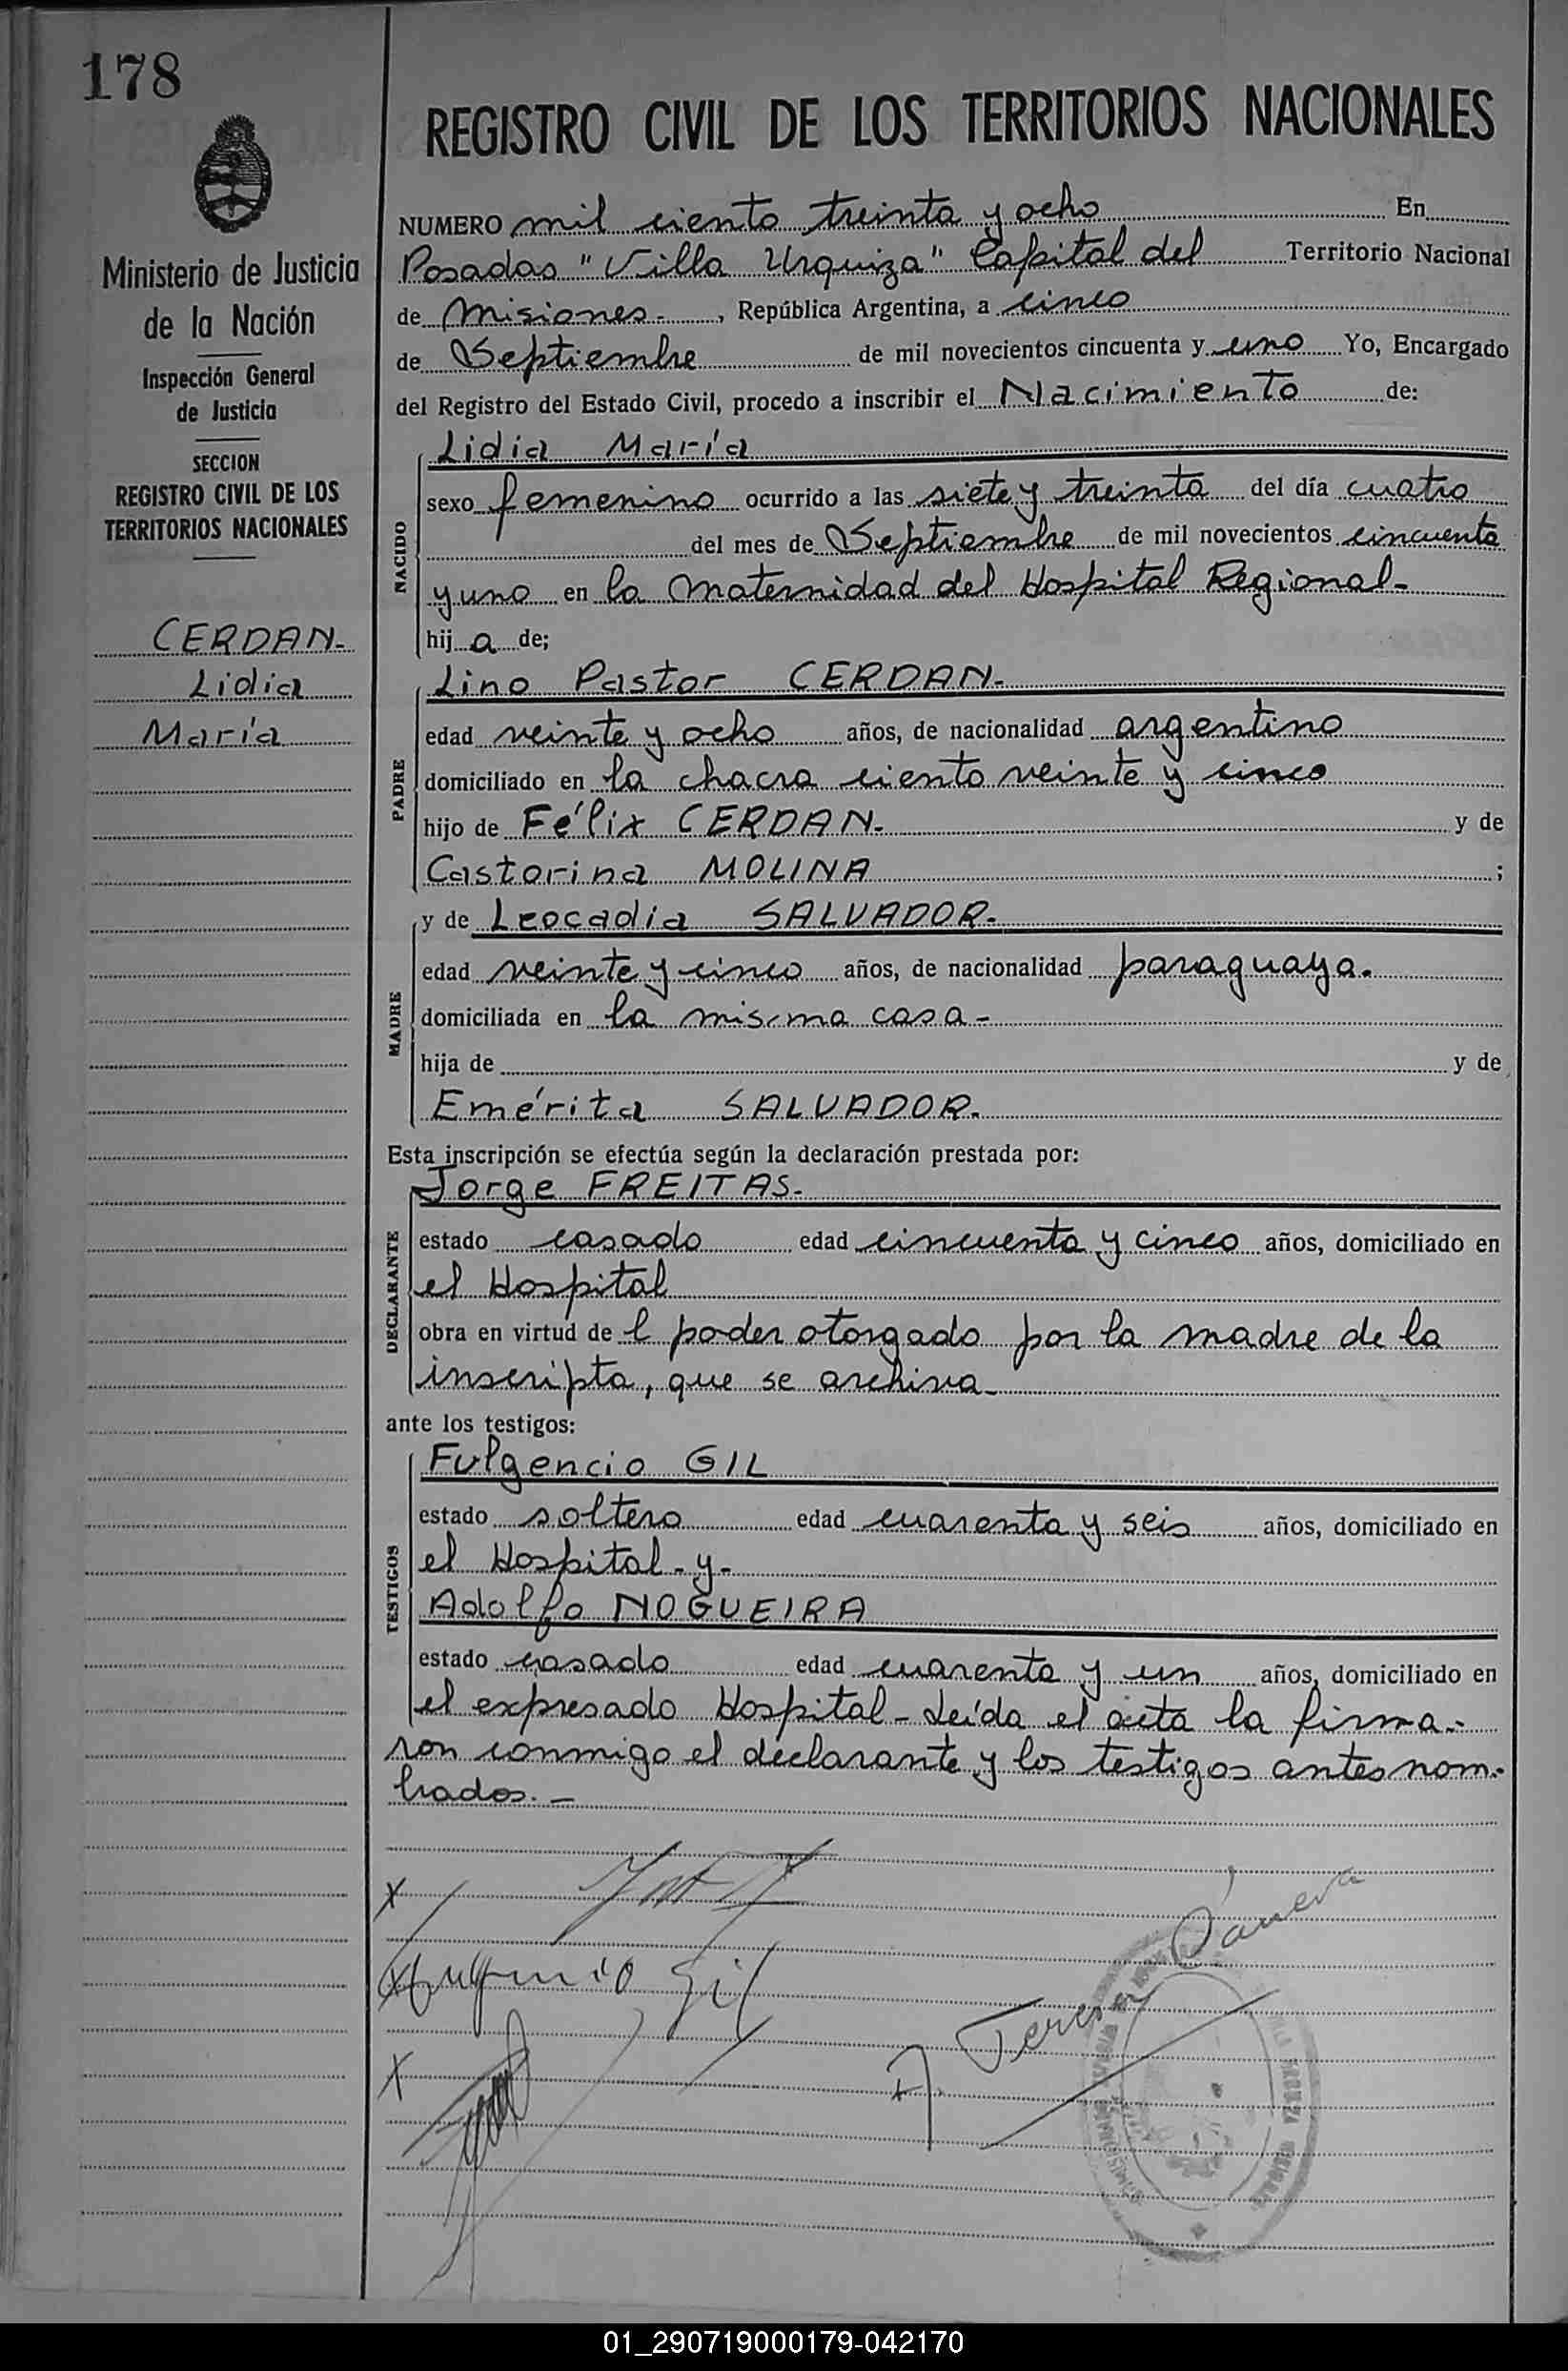 178
Ministerio de Justicia
de la Nación
Inspección General
de Justicia
SECCION
REGISTRO CIVIL DE LOS
TERRITORIOS NACIONALES
CERDAN-
Lidia
María
REGISTRO CIVIL DE LOS TERRITORIOS NACIONALES
NUMERO mil ciento treinta y ocho En
Posadas "Villa Urquiza" Capital del Territorio Nacional
de Misiones-, República Argentina, a cinco
de Septiembre de mil novecientos cincuenta y uno Yo, Encargado
del Registro del Estado Civil, procedo a inscribir el Nacimiento de:
NACIDO
Lidia María
sexo femenino ocurrido a las siete y treinta del día cuatro
del mes de Septiembre de mil novecientos cincuenta
y uno en la Maternidad del Hospital Regional-
hij a de;
PADRE
Lino Pastor CERDAN-
edad veinte y ocho años, de nacionalidad argentino
domiciliado en la chacra ciento veinte y cinco
hijo de Félix CERDAN- y de
Castorina MOLINA ;
MADRE
y de Leocadia SALVADOR-
edad veinte y cinco años, de nacionalidad paraguaya.
domiciliada en la misma casa-
hija de y de
Emérita SALVADOR.
Esta inscripción se efectúa según la declaración prestada por:
DECLARANTE
Jorge FREITAS-
estado casado edad cincuenta y cinco años, domiciliado en
el Hospital
obra en virtud de l poder otorgado por la madre de la
inscripta, que se archiva-
ante los testigos:
TESTIGOS
Fulgencio GIL
estado soltero edad cuarenta y seis años, domiciliado en
el Hospital-y-
Adolfo NOGUEIRA
estado casado edad cuarenta y un años, domiciliado en
el expresado Hospital-Leída el acta la firma-
ron conmigo el declarante y los testigos antes nom-
brados.-
X
X Fulgencio Gil
X
01_290719000179-042170